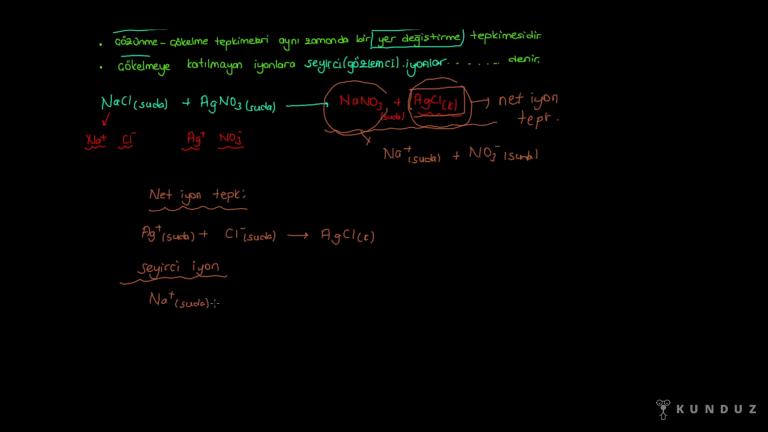 • çözünme - çökelme tepkimeleri aynı zamanda bir yer değiştirme tepkimesidir.
• çökelmeye katılmayan iyonlara seyirci (gözlemci) iyonlar ....... denir.
NaCl(suda) + AgNO3(suda) → NaNO3(suda) + AgCl(k) → net iyon tepk.
Na+ Cl- Ag+ NO3-
Na+(suda) + NO3-(suda)
Net iyon tepk:
Ag+(suda) + Cl-(suda) → AgCl(k)
seyirci iyon
Na+(suda)
KUNDUZ